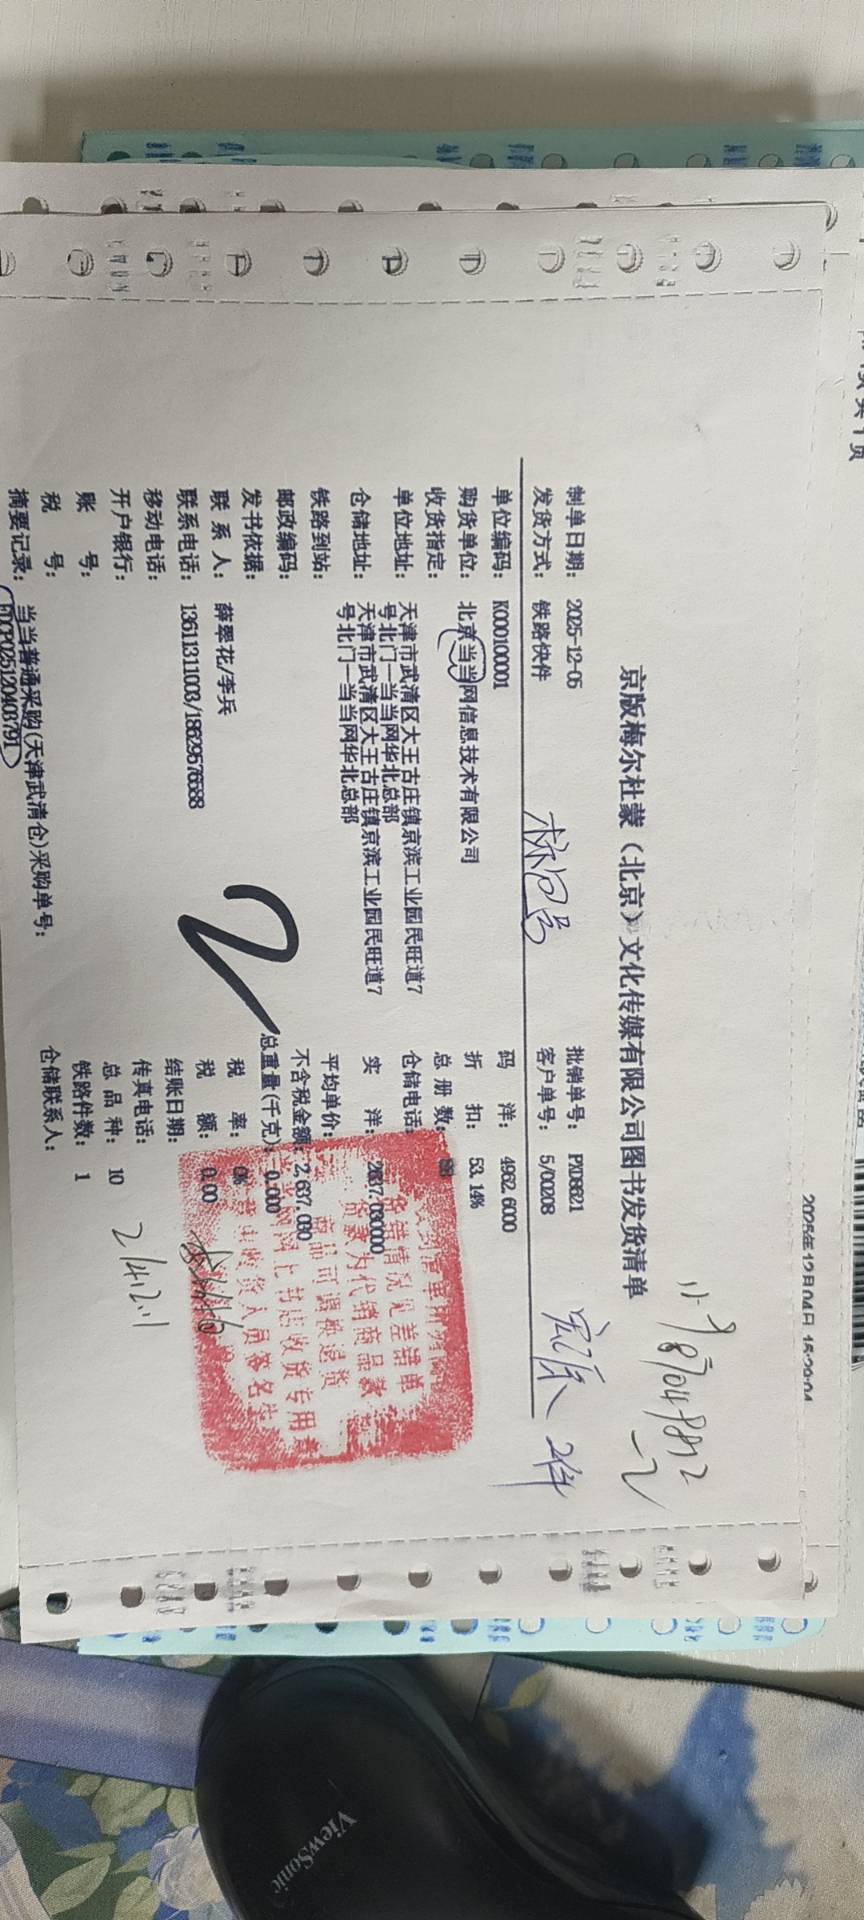 2025年12月04日 15:29:04
京版梅尔杜蒙（北京）文化传媒有限公司图书发货清单
制单日期： 2025-12-05 批销单号： PX08821
发货方式： 铁路快件 客户单号： 5/00208
2件
单位编码： K000100001 码 洋： 4962.6000
购货单位： 北京当当网信息技术有限公司 折 扣： 53.14%
收货指定： 总 册 数：
单位地址： 天津市武清区大王古庄镇京滨工业园民旺道7
号北门一当当网华北总部 仓储电话：
仓储地址： 天津市武清区大王古庄镇京滨工业园民旺道7
号北门一当当网华北总部 实 洋： 2637.080000
铁路到站： 平均单价：
邮政编码： 不含税金额： 2,637.080
发书依据： 总重量(千克)： 0.000
联 系 人： 薛翠花/李兵 税 率： 0%
联系电话： 13611311003/18629576588 税 额： 0.00
移动电话： 结账日期：
开户银行： 传真电话：
账 号： 总 品 种： 10
税 号： 铁路件数： 1
摘要记录： 当当普通采购(天津武清仓)采购单号： 仓储联系人：
货销情况见差错单
货款为代销商品款
商品可调换退货
2
ViewSonic